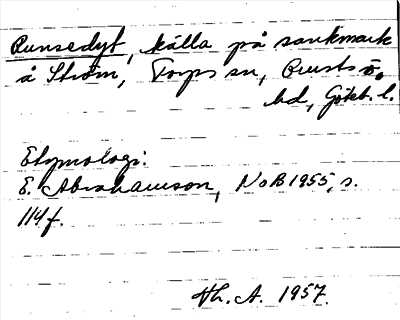 Runsedyt, källa på sankmark
å Ström, Torps sn, Orusts ö.
hd, Göteb. l.
Etymologi:
E. Abrahamson, NoB 1955, s.
114 f.
Hh. A. 1957.